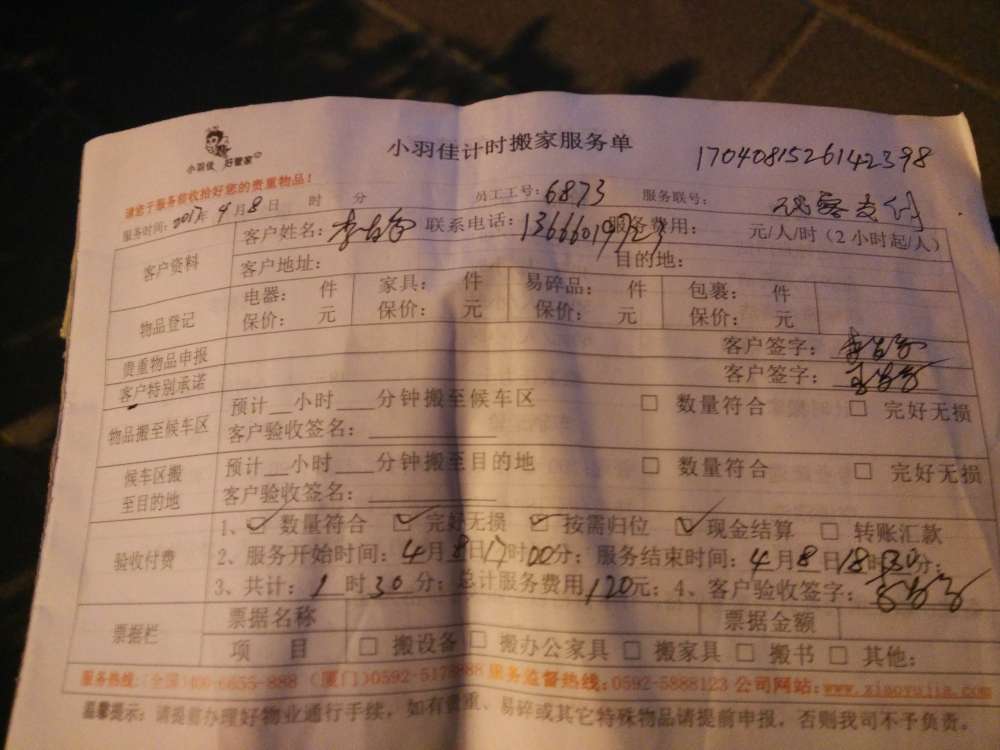 小羽佳 好管家
小羽佳计时搬家服务单
1704081526142398
请您于服务前收拾好您的贵重物品！
服务时间：2017年4月8日 时 分 员工工号：6873 服务联号：
支付
客户资料 客户姓名： 联系电话： 服务费用： 元/人/时（2小时起/人）
客户地址： 目的地：
物品登记 电器： 件 家具： 件 易碎品： 件 包裹： 件
保价： 元 保价： 元 保价： 元 保价： 元
贵重物品申报 客户签字：
客户特别承诺 客户签字：
物品搬至候车区 预计__小时___分钟搬至候车区 □ 数量符合 □ 完好无损
客户验收签名：__________
候车区搬至目的地 预计__小时___分钟搬至目的地 □ 数量符合 □ 完好无损
客户验收签名：__________
验收付费 1、☑ 数量符合 ☑ 完好无损 ☑ 按需归位 ☑ 现金结算 □ 转账汇款
2、服务开始时间：4月8日17时00分；服务结束时间：4月8日18时30分；
3、共计：1时30分；总计服务费用120元；4、客户验收签字：
票据栏 票据名称 票据金额
项 目 □ 搬设备 □ 搬办公家具 □ 搬家具 □ 搬书 □ 其他：
服务热线：（全国）400-6655-888 （厦门）0592-5175888 服务监督热线：0592-5888123 公司网站：www.xiaoyujia.com
温馨提示：请提前办理好物业通行手续，如有贵重、易碎或其它特殊物品请提前申报，否则我司不予负责。